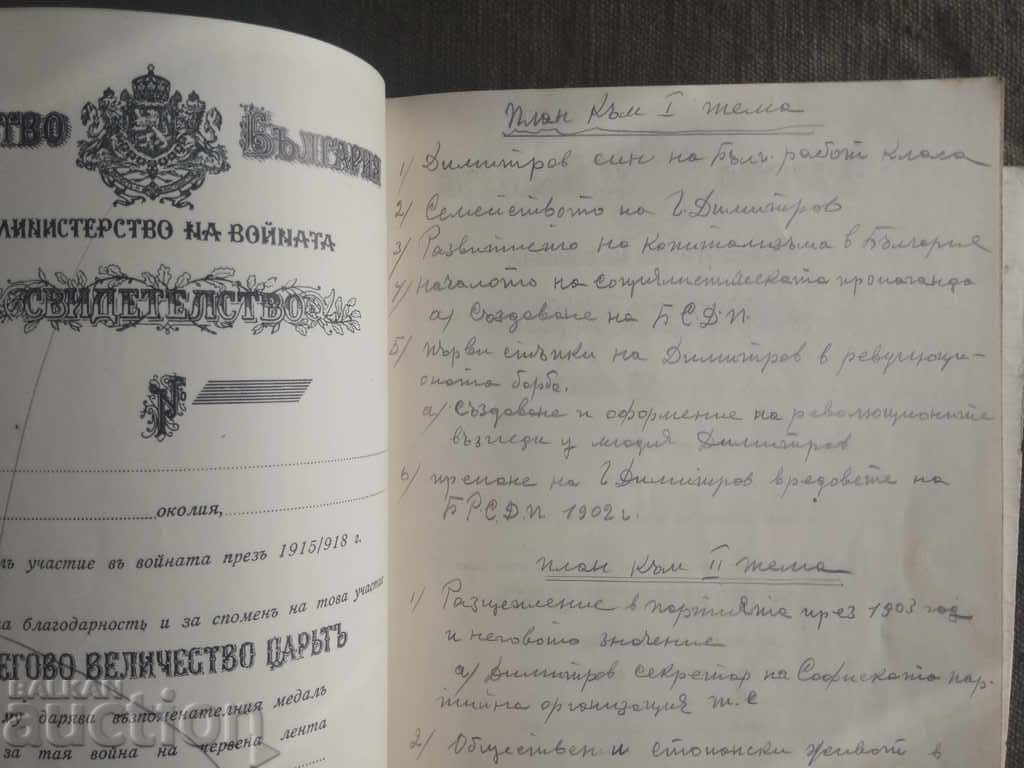 СТВО БЪЛГАРИЯ
МИНИСТЕРСТВО НА ВОЙНАТА
СВИДЕТЕЛСТВО
№
околия,
участие въ войната презъ 1915/918 г.
на благодарность и за споменъ на това участие
НЕГОВО ВЕЛИЧЕСТВО ЦАРЬТЪ
му дарява възпоменателния медалъ
за тая война на червена лента
План към I тема
1) Димитров син на Бълг. работ класа
2) Семейството на Г. Димитров
3) Развитието на капитализъма в България
4) началото на социялистическата пропаганда
а) Създаване на Б.С.Д.П.
5) първи стъпки на Димитров в револющи-
оната борба.
а) създаване и оформение на революционите
възгледи у младия Димитров
6) приемане на Г Димитров в редовете на
Б.Р.С.Д.П. 1902 г.
план към II тема
1) Разцепление в партията през 1903 год
и неговото значение
а) Димитров секретар на Софиската пар-
тийна организация т. С
2) Обществен и стопански живот в
БАЛКАН
auction